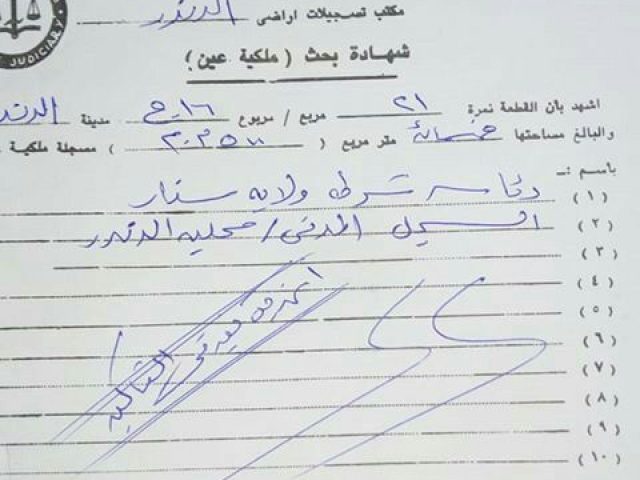 JUDICIARY
مكتب تسجيلات اراضى الدندر
شهادة بحث ( ملكية عين )
اشهد بأن القطعة نمرة ٢١ مربع / مربوع ١٦ ح مدينة الدندر
والبالغ مساحتها خمسمائة متر مربع ( ٥٠٠ م.م ) مسجلة ملكية
باسم :ـ
( ١ ) رئاسة شرطة ولاية سنار
( ٢ ) السجل المدني / محلية الدندر
( ٣ )
( ٤ )
( ٥ )
( ٦ )
( ٧ )
( ٨ )
( ٩ )
( ١٠ )